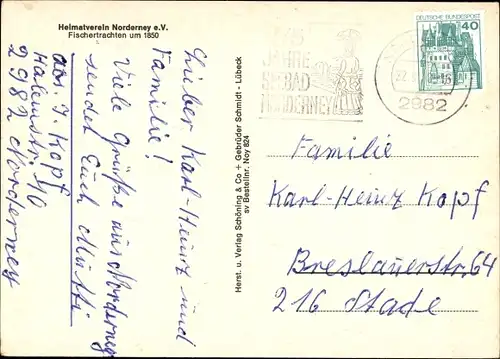 Heimatverein Norderney e.V.
Fischertrachten um 1850
Lieber Karl-Heinz und
Familie!
Viele Grüße aus Norderney
sendet Euch Mutti
Abs. J. Kopf
Halemstr. 40
2982 Norderney
Herst. u. Verlag Schöning & Co + Gebrüder Schmidt - Lübeck
sv Bestellnr. Noy 824
JAHRE
SEEBAD
NORDERNEY
2982
DEUTSCHE BUNDESPOST
40
Familie
Karl-Heinz Kopf
Breslauerstr. 64
216 Stade